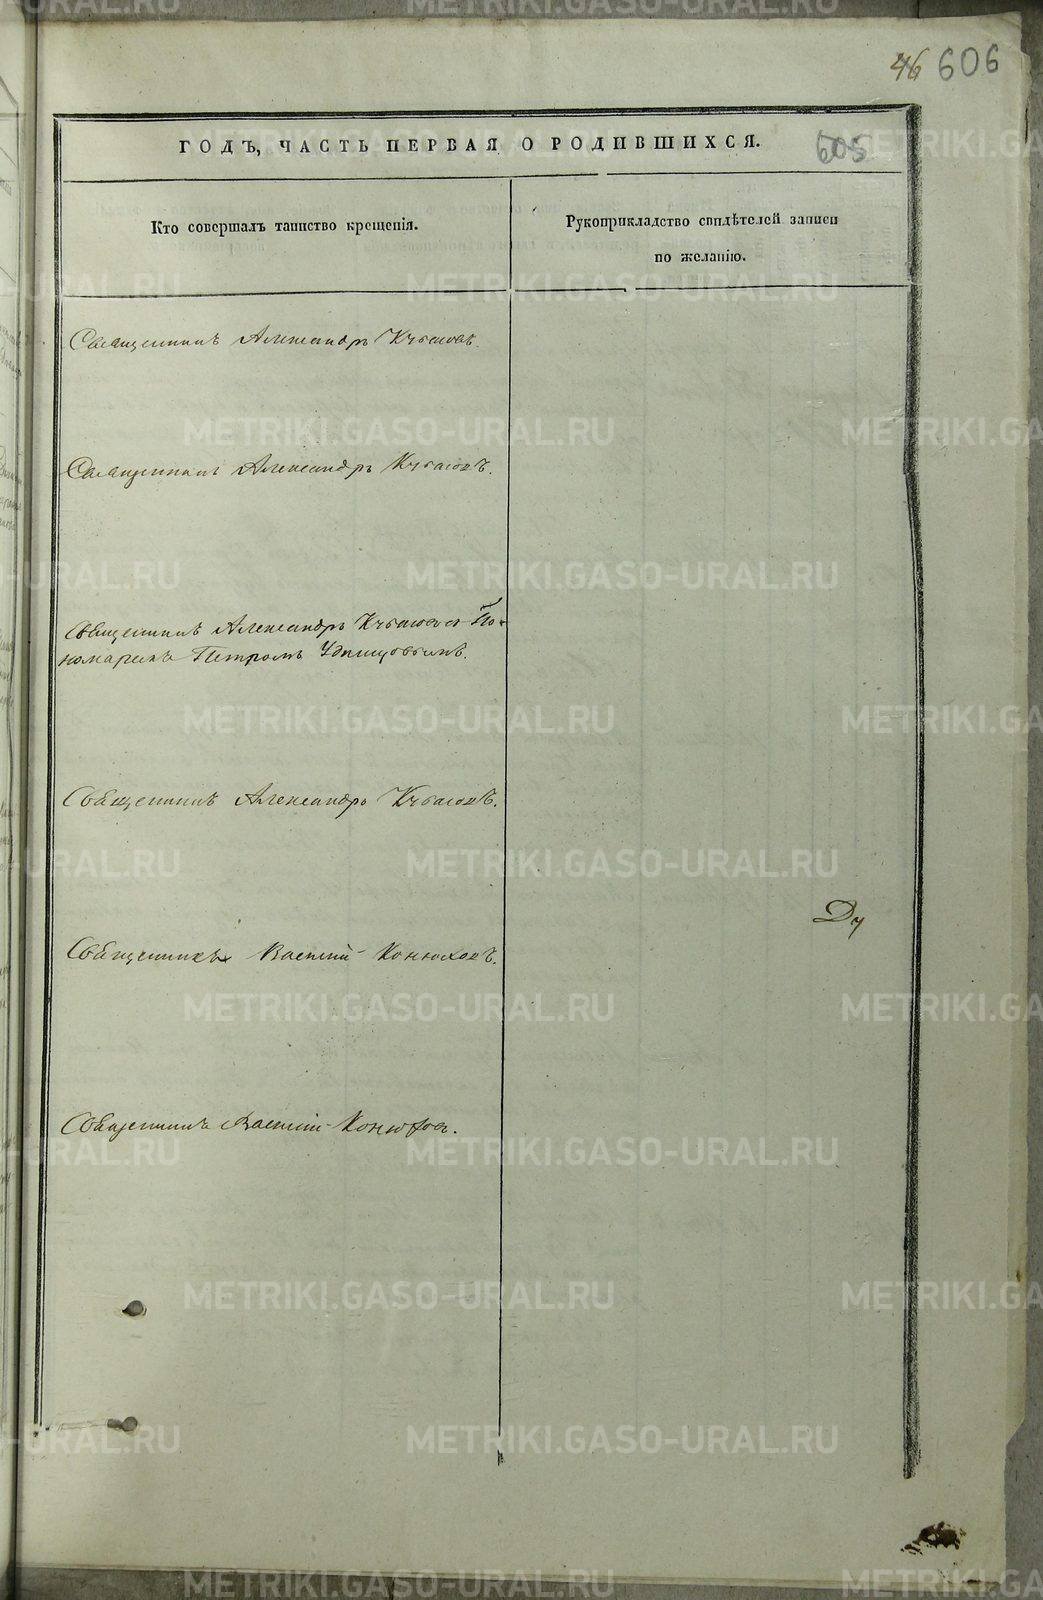 46 606
ГОДЪ, ЧАСТЬ ПЕРВАЯ О РОДИВШИХСЯ. 605
Кто совершалъ таинство крещенія.
Рукоприкладство свидѣтелей записи
по желанію.
Священникъ Александръ Кубасовъ.
Священникъ Александръ Кубасовъ.
Священникъ Александръ Кубасовъ По-
номаремъ Петромъ
Священникъ Александръ Кубасовъ.
Священникъ Василій Конюховъ.
Священникъ Василій Конюховъ.
Ду
METRIKI.GASO-URAL.RU